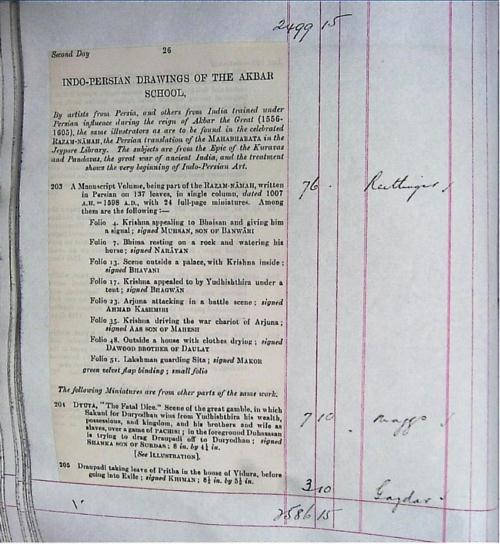 2499 15
Second Day 26
INDO-PERSIAN DRAWINGS OF THE AKBAR
SCHOOL,
By artists from Persia, and others from India trained under
Persian influence during the reign of Akbar the Great (1556-
1605), the same illustrators as are to be found in the celebrated
RAZAM-NĀMAH, the Persian translation of the MAHABHARATA in the
Jeypore Library. The subjects are from the Epic of the Kuravas
and Pandavas, the great war of ancient India, and the treatment
shows the very beginning of Indo-Persian Art.
203 A Manuscript Volume, being part of the RAZAM-NĀMAH, written
in Persian on 137 leaves, in single column, dated 1007
A.H. = 1598 A.D., with 24 full-page miniatures. Among
them are the following :—
76
Folio 4. Krishna appealing to Bhaisan and giving him
a signal; signed MUHSAN, SON OF BANWĀRI
Folio 7. Bhima resting on a rock and watering his
horse; signed NARĀYAN
Folio 13. Scene outside a palace, with Krishna inside;
signed BHAVANI
Folio 17. Krishna appealed to by Yudhishthira under a
tent; signed BHAGWĀN
Folio 23. Arjuna attacking in a battle scene; signed
AHMAD KASHMIRI
Folio 35. Krishna driving the war chariot of Arjuna;
signed AAS SON OF MAHESH
Folio 48. Outside a house with clothes drying; signed
DAWOOD BROTHER OF DAULAT
Folio 51. Lakshman guarding Sita; signed MAKOR
green velvet flap binding; small folio
The following Miniatures are from other parts of the same work.
204 DYUTA, "The Fatal Dice." Scene of the great gamble, in which
Sakuni for Duryodhan wins from Yudhishthira his wealth,
possessions, and kingdom, and his brothers and wife as
slaves, over a game of PACHISI; in the foreground Duhsasan
is trying to drag Draupadi off to Duryodhan; signed
SHANKA SON OF SURDAS; 8 in. by 4½ in.
[See ILLUSTRATION].
7 10 Maggs
205 Draupadi taking leave of Pritha in the house of Vidura, before
going into Exile; signed KHIMAN; 8½ in. by 5½ in.
3 10 Gazdar
2586 15